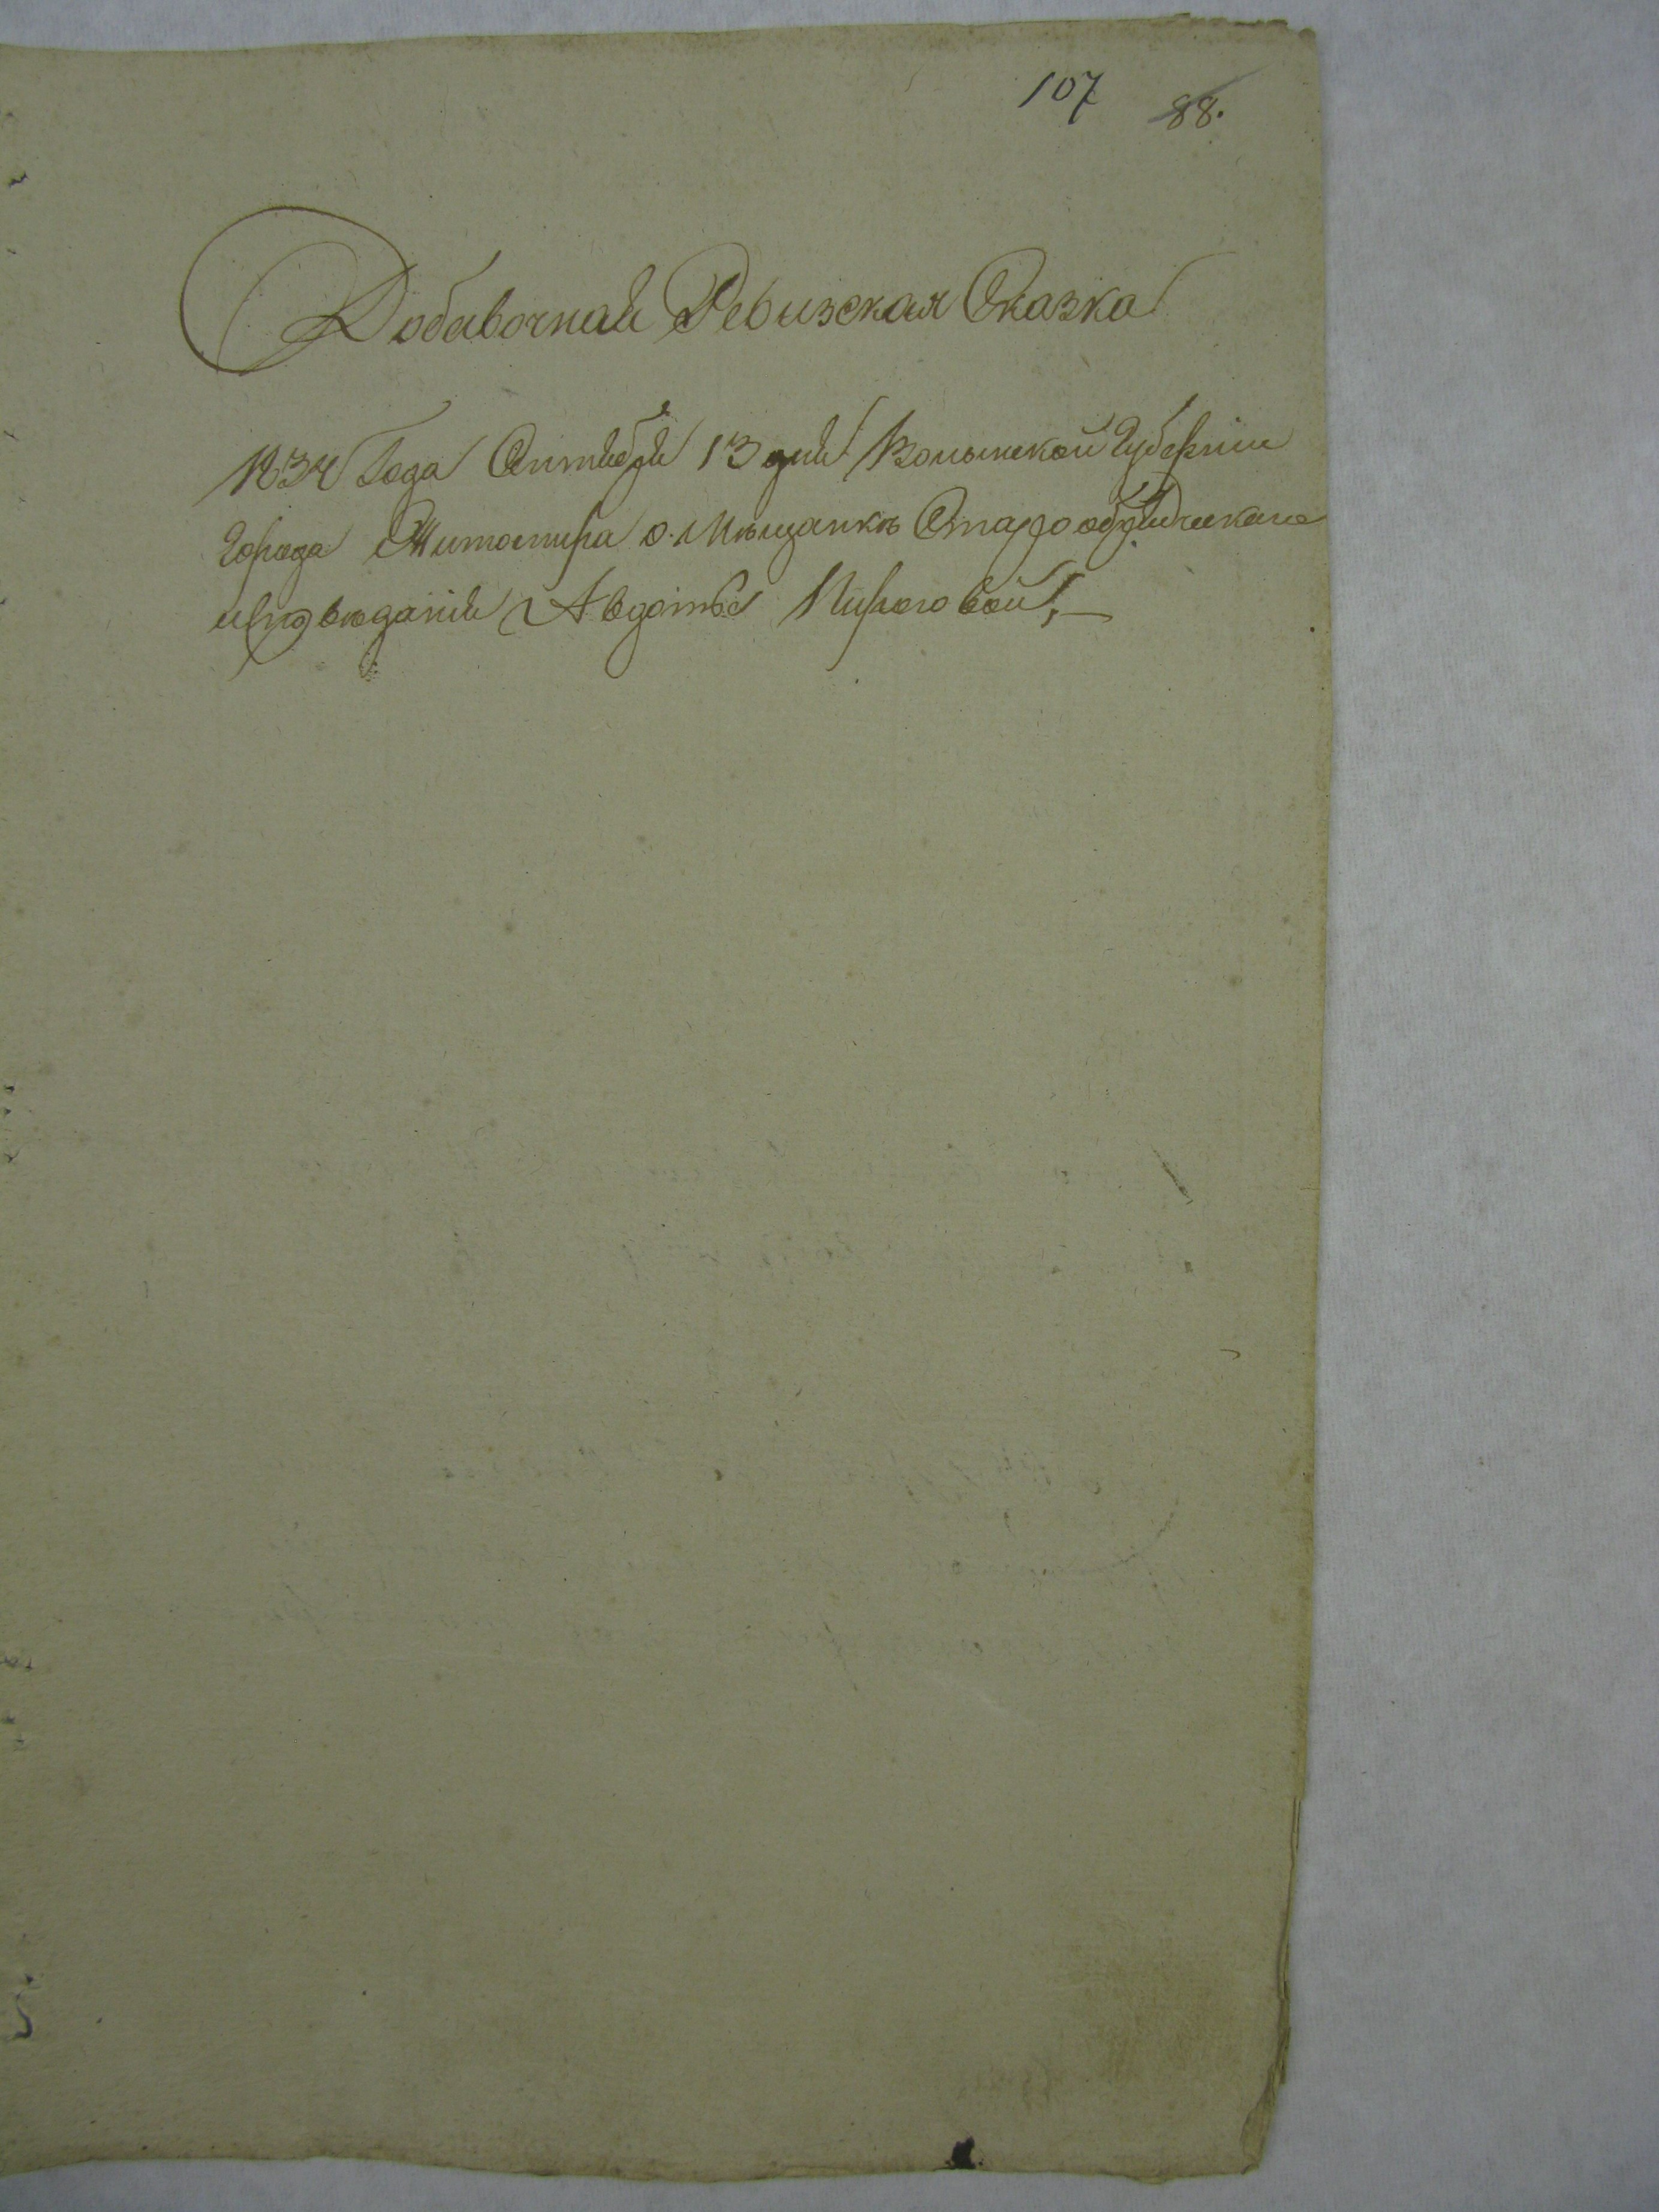 107 88.
Добавочная Ревизская Сказка
1834 Года Октября 13 дня Волынской Губернiи
Города Житомира о Мѣщанкѣ Старообрядческаго
исповѣданiя Авдотье Пироговой,—